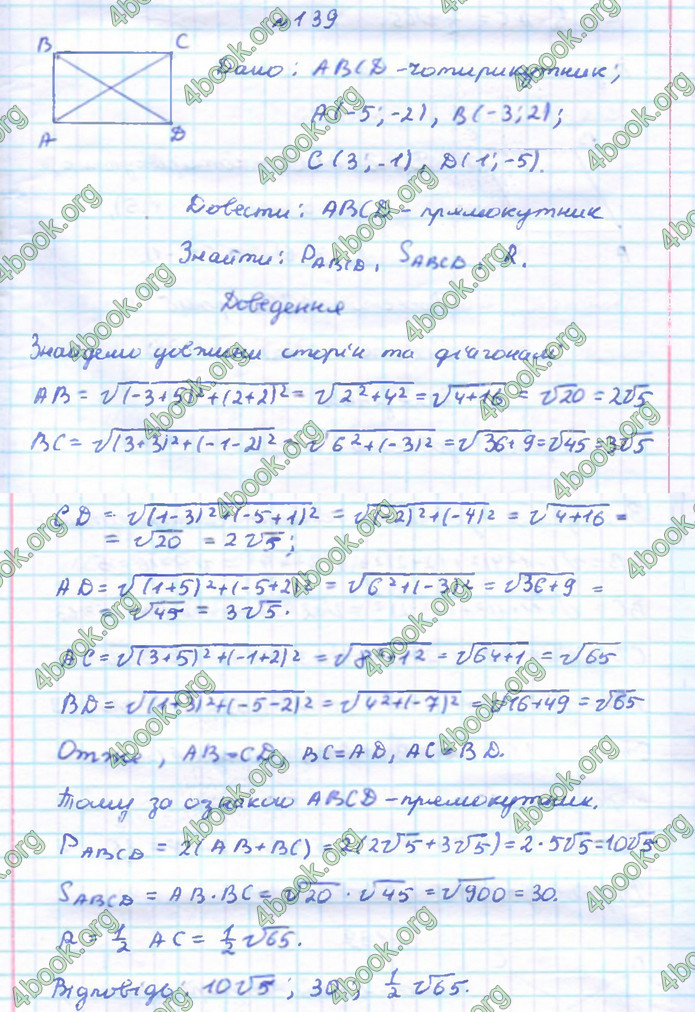 №139
B C
A D
Дано: ABCD - чотирикутник;
A(-5;-2), B(-3;2);
C(3;-1), D(1;-5).
Довести: ABCD - прямокутник
Знайти: P_ABCD, S_ABCD, R.
Доведення
Знайдемо довжини сторін та діагоналі
AB = √((-3+5)²+(2+2)²) = √(2²+4²) = √(4+16) = √20 = 2√5
BC = √((3+3)²+(-1-2)²) = √(6²+(-3)²) = √(36+9) = √45 = 3√5
CD = √((1-3)²+(-5+1)²) = √((-2)²+(-4)²) = √(4+16) =
= √20 = 2√5;
AD = √((1+5)²+(-5+2)²) = √(6²+(-3)²) = √(36+9) =
= √45 = 3√5.
AC = √((3+5)²+(-1+2)²) = √(8²+1²) = √(64+1) = √65
BD = √((1+3)²+(-5-2)²) = √(4²+(-7)²) = √(16+49) = √65
Отже, AB=CD, BC=AD, AC=BD.
Тому за ознакою ABCD - прямокутник.
P_ABCD = 2(AB+BC) = 2(2√5+3√5) = 2·5√5 = 10√5
S_ABCD = AB·BC = √20·√45 = √900 = 30.
R = 1/2 AC = 1/2 √65.
Відповідь: 10√5; 30; 1/2 √65.
4book.org